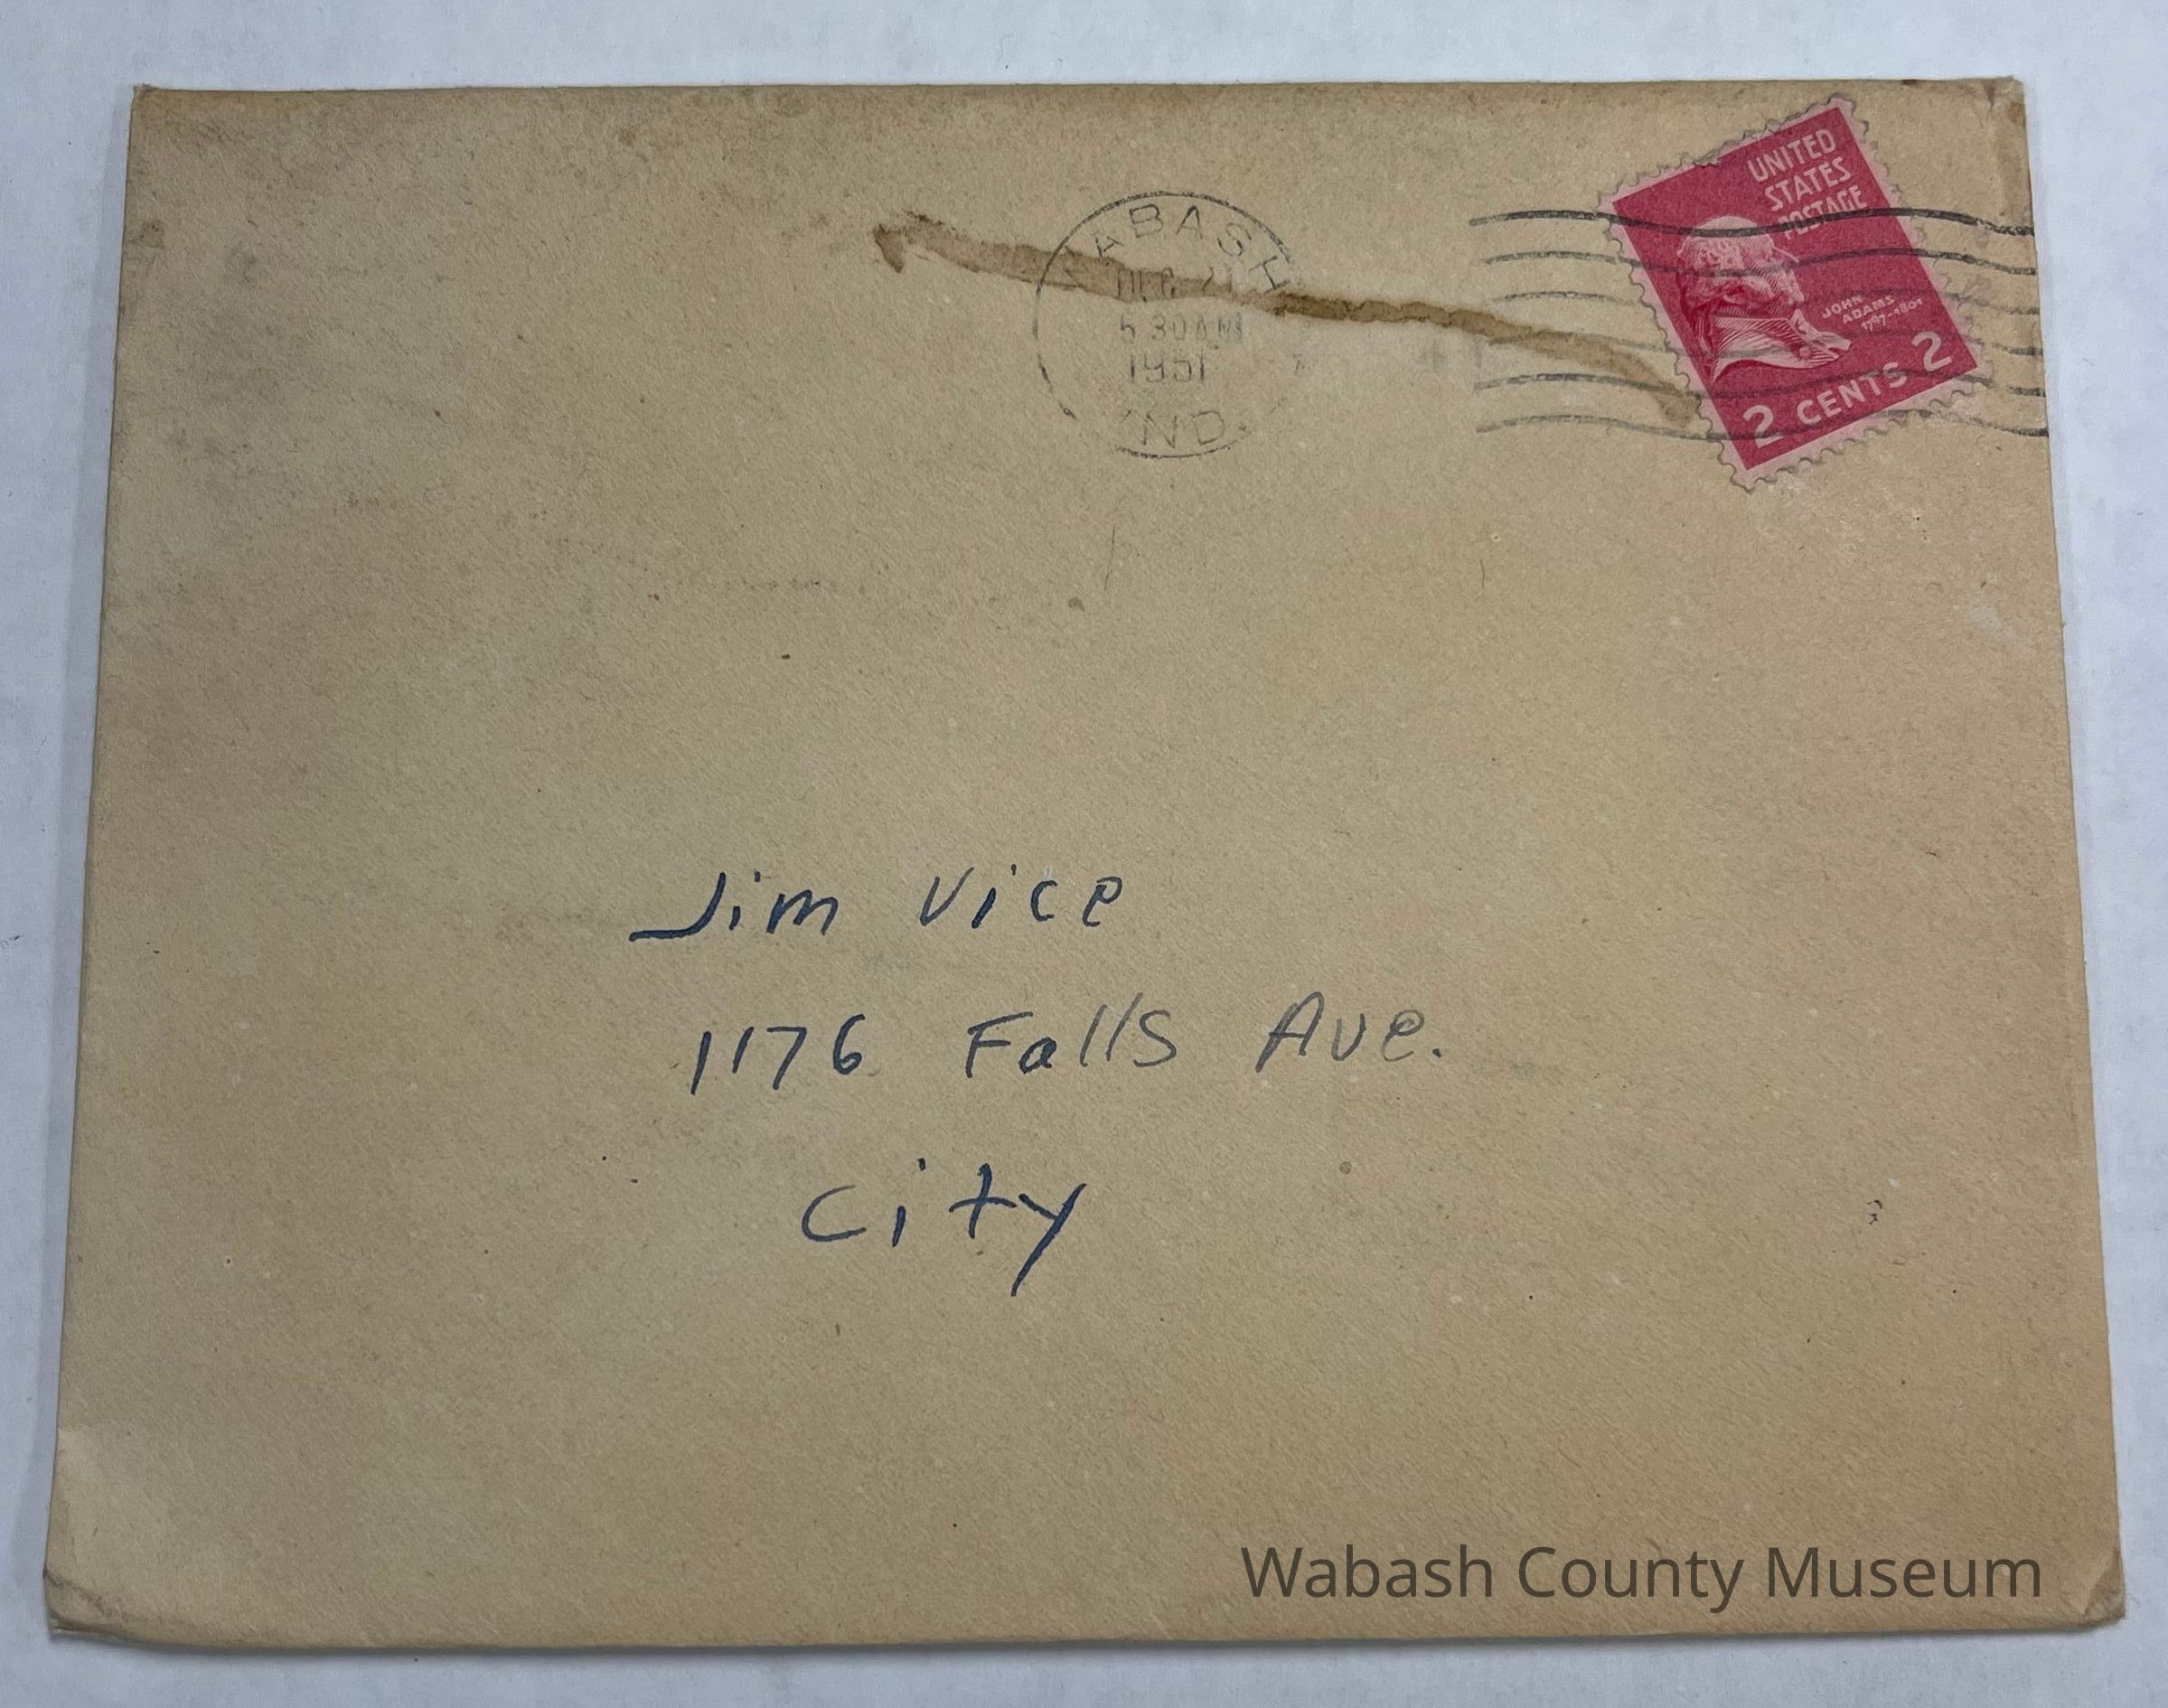 WABASH
DEC 21
5 30 AM
1951
IND.
UNITED
STATES
POSTAGE
JOHN
ADAMS
1797-1801
2 CENTS 2
Jim Vice
1176 Falls Ave.
City
Wabash County Museum